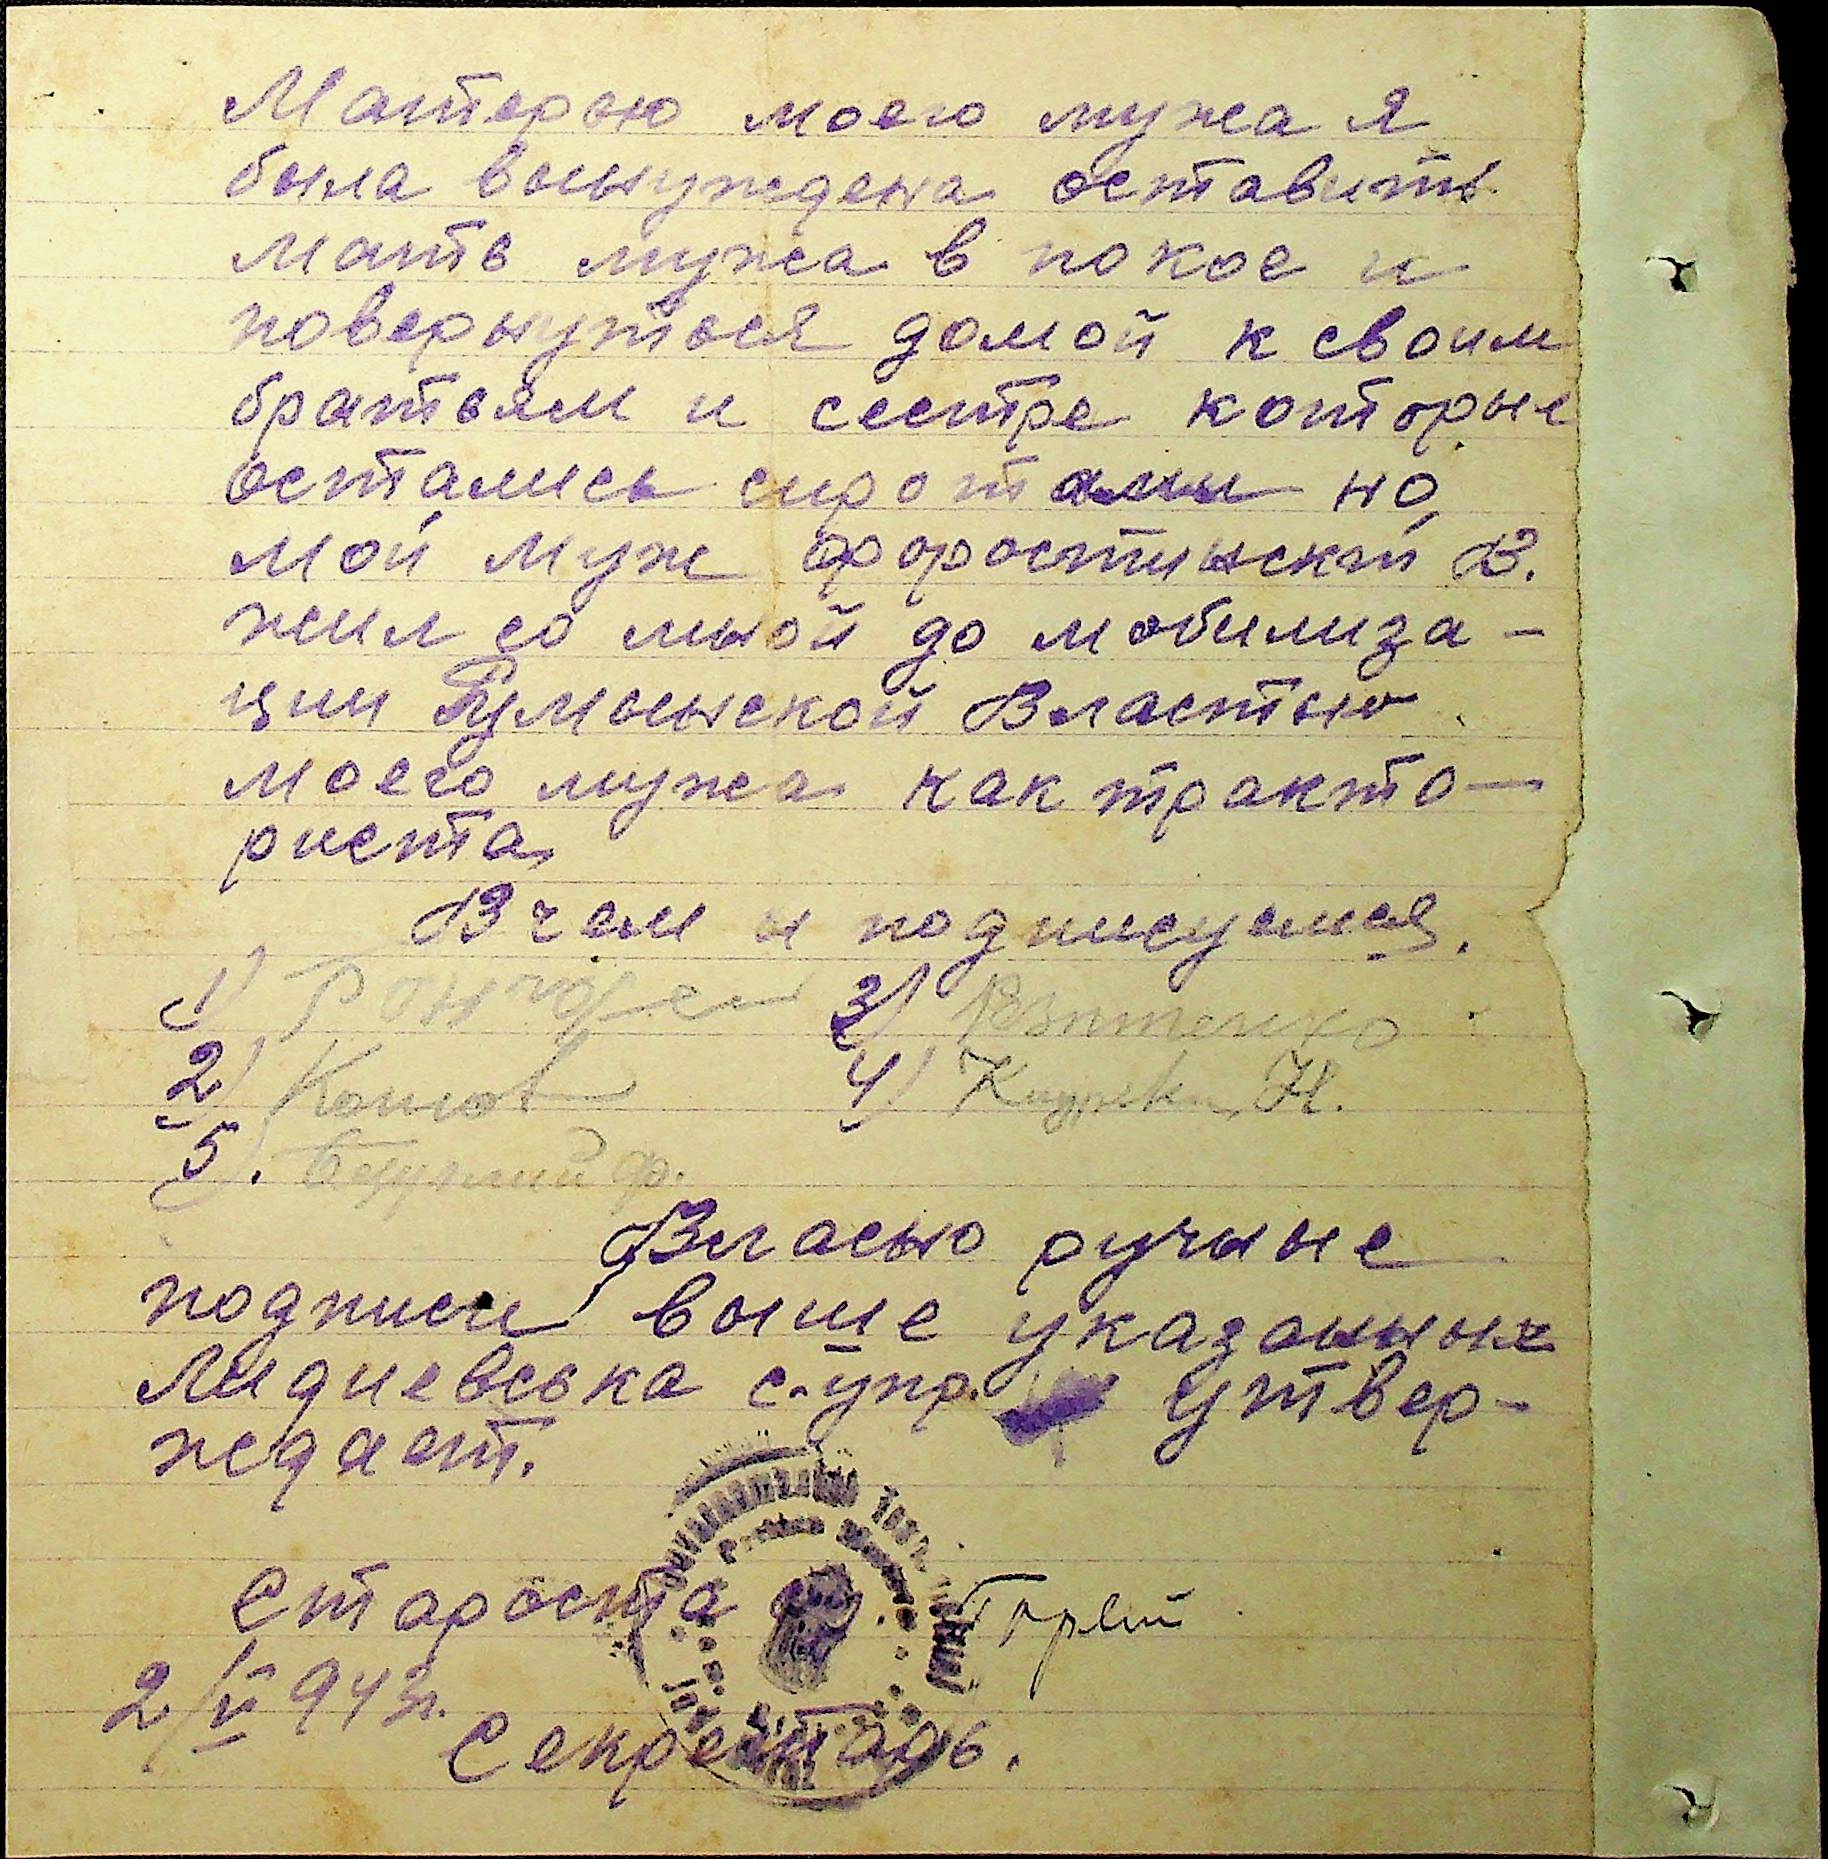 Матерью моего мужа я
была вынуждена оставить
мать мужа в покое и
повернуться домой к своим
братьям и сестре которые
остались сиротами но
мой муж Форостинскій В.
жил со мной до мобилиза-
ции Румынской Властью
моего мужа как тракто-
риста
В чем и подписуемся.
1) 3)
2) 4) Н.
5). Ф.
Власно ручные
подписи выше указанных
Лидиевська с. упр. утвер-
ждает.
Староста
2/V 943 г.
Секретарь.